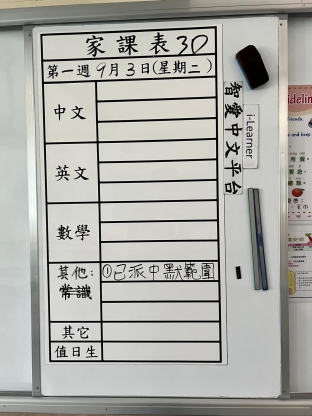 家課表 3D
第一週 9月3日(星期二)
中文
英文
數學
其他:
常識
①已派中默範圍
其它
值日生
智愛中文平台
i-Learner